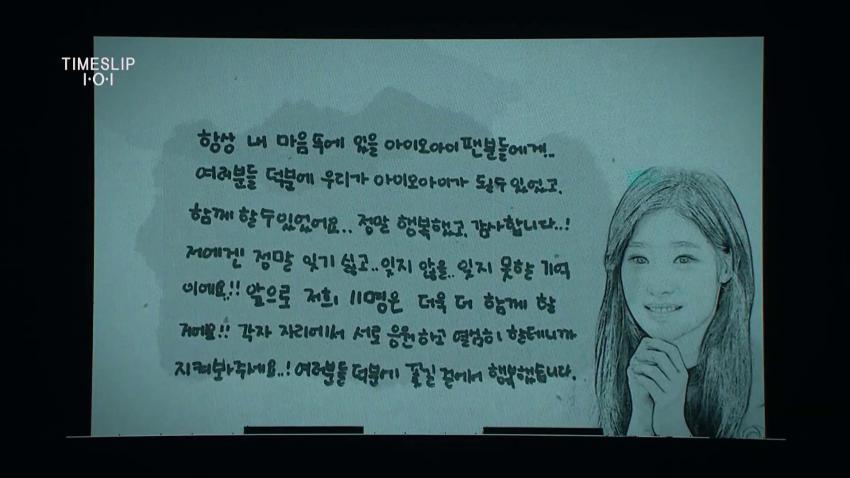 TIMESLIP
I·O·I
항상 내 마음속에 있을 아이오아이 팬분들에게..
여러분들 덕분에 우리가 아이오아이가 될수 있었고,
함께 할 수 있었어요.. 정말 행복했고, 감사합니다..!
저에겐 정말 잊기 싫고.. 잊지 않을.. 잊지 못할 기억
이에요!! 앞으로 저희 11명은 더욱 더 함께 할
거에요!! 각자 자리에서 서로 응원하고 열심히 할테니까
지켜봐주세요..! 여러분들 덕분에 꽃길 걸에서 행복했습니다.